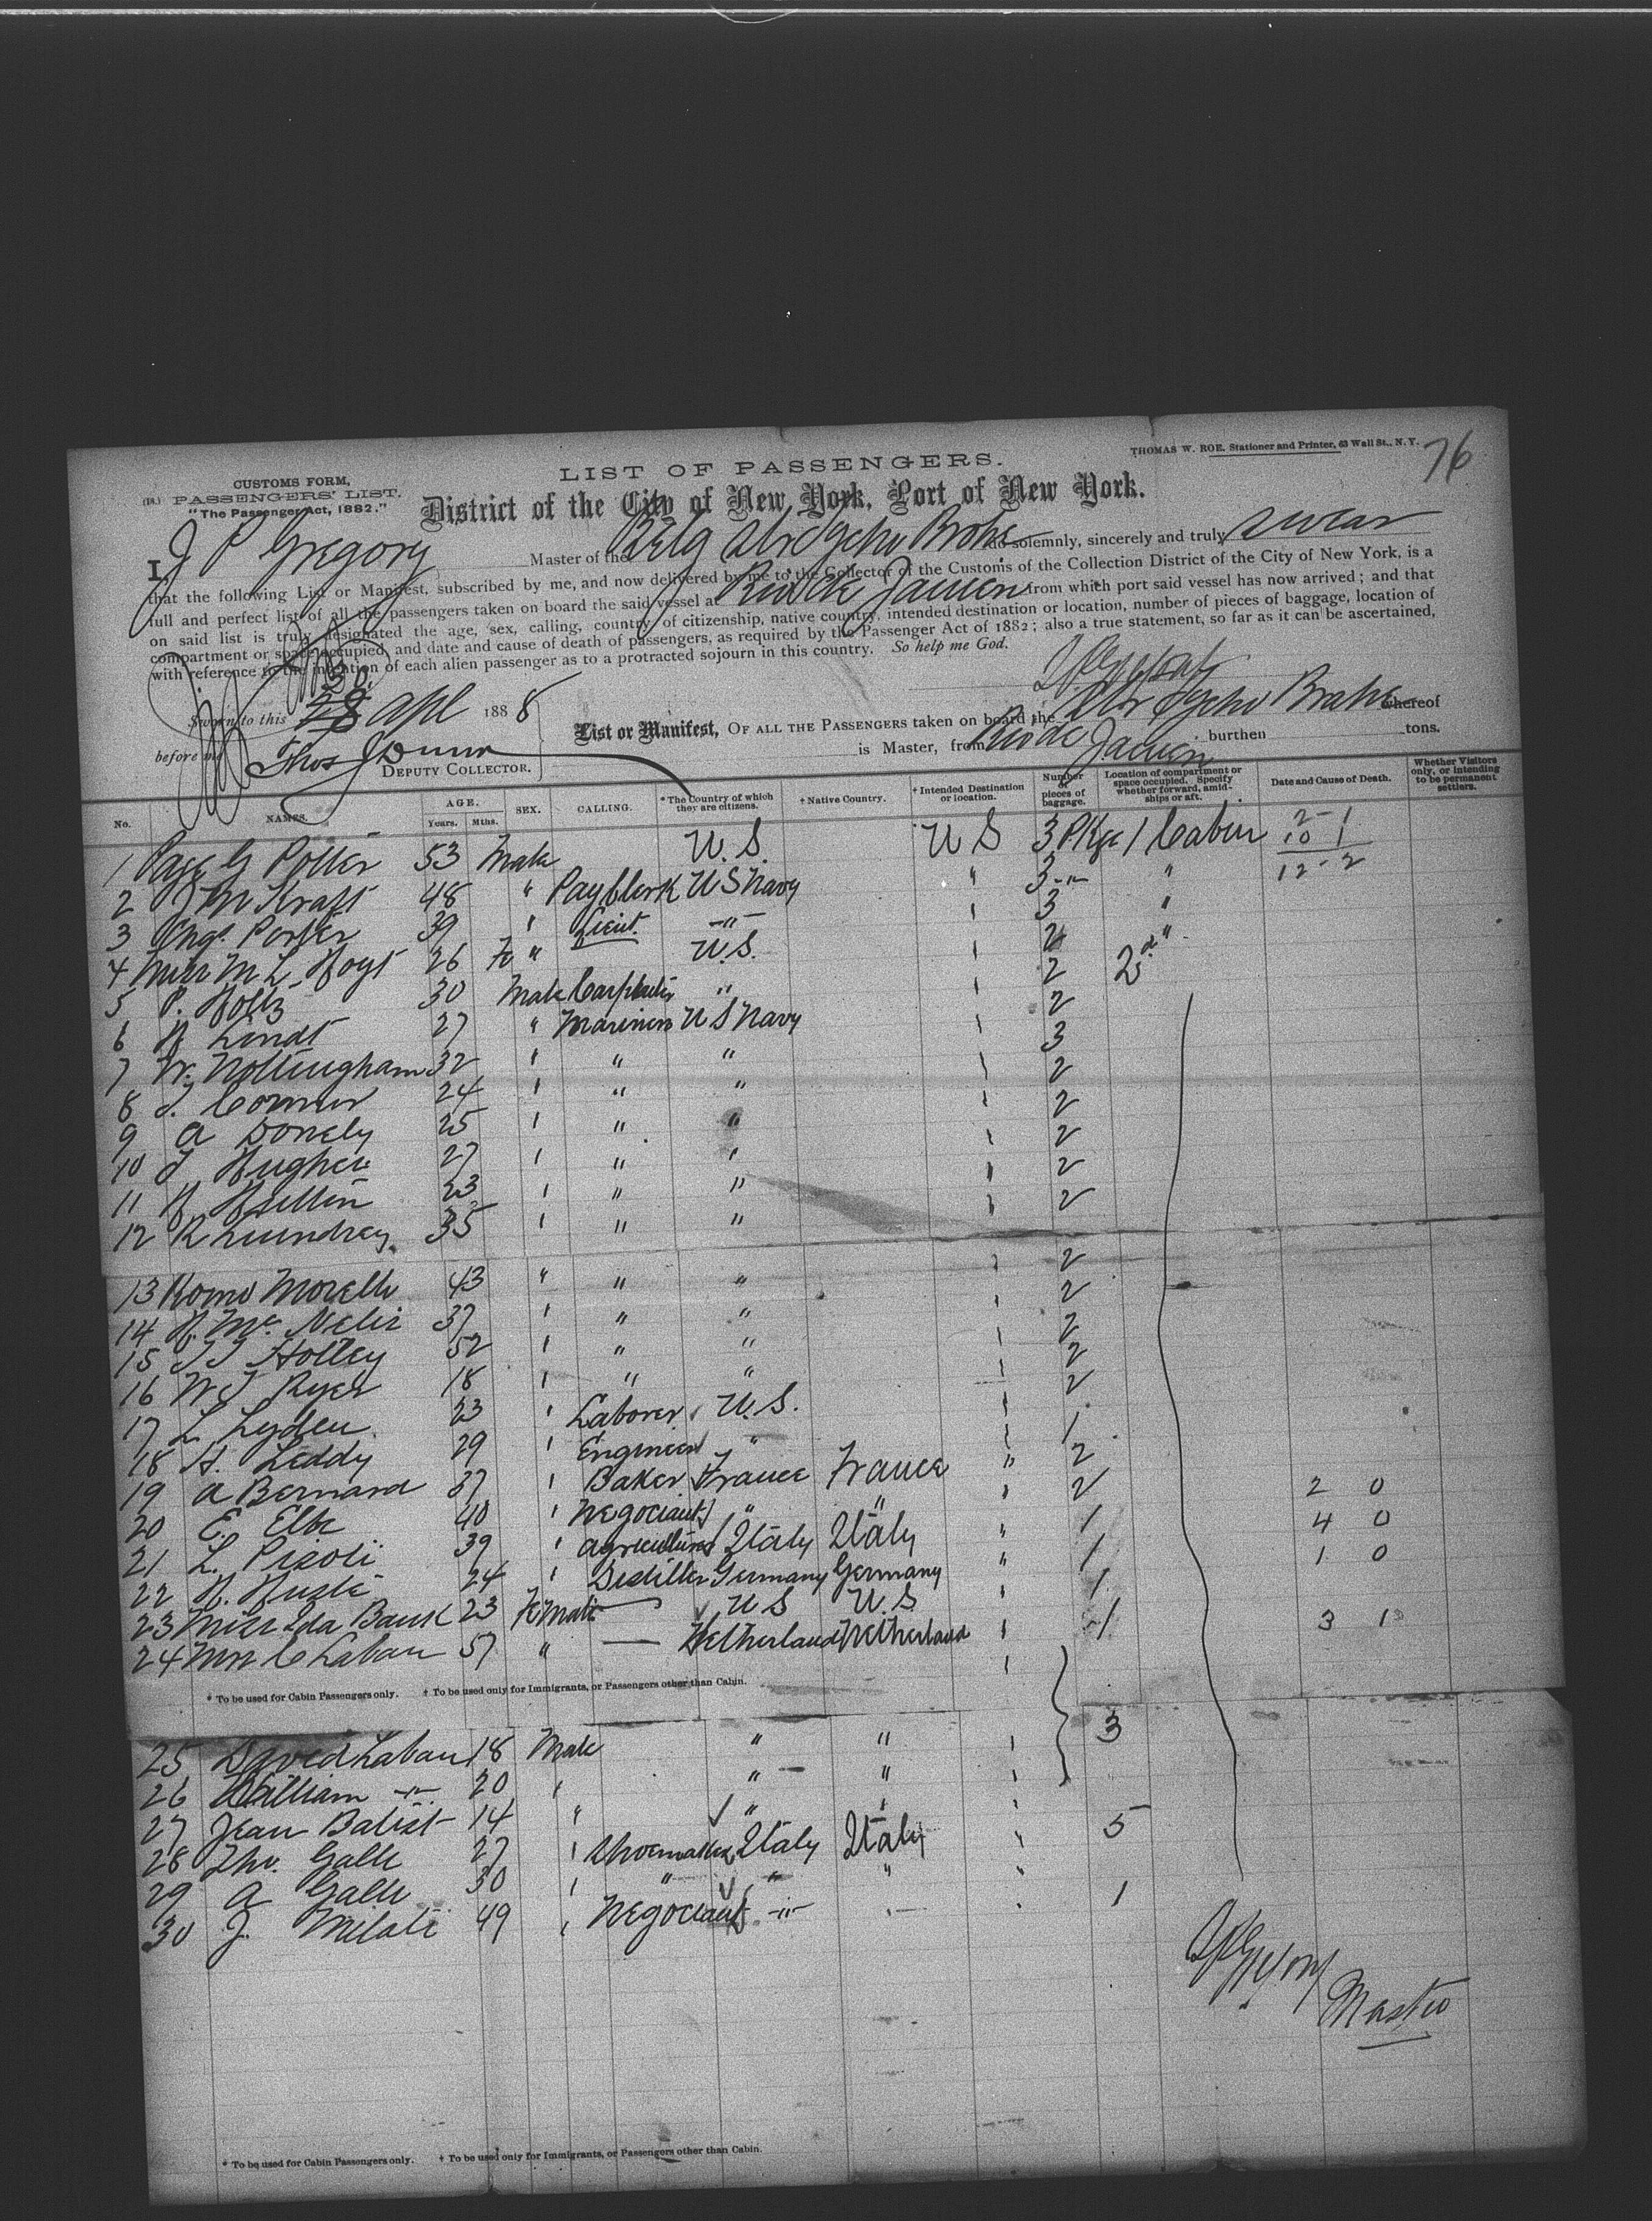 THOMAS W. ROE, Stationer and Printer, 63 Wall St., N. Y.
76
CUSTOMS FORM,
PASSENGERS' LIST.
"The Passenger Act, 1882."
LIST OF PASSENGERS.
District of the City of New York, Port of New York.
I J P Gregory Master of the Belg Str Tycho Brahe do solemnly, sincerely and truly swear
that the following List or Manifest, subscribed by me, and now delivered by me to the Collector of the Customs of the Collection District of the City of New York, is a
full and perfect list of all the passengers taken on board the said vessel at Rio de Janeiro from which port said vessel has now arrived; and that
on said list is truly designated the age, sex, calling, country of citizenship, native country, intended destination or location, number of pieces of baggage, location of
compartment or space occupied, and date and cause of death of passengers, as required by the Passenger Act of 1882; also a true statement, so far as it can be ascertained,
with reference to the intention of each alien passenger as to a protracted sojourn in this country. So help me God.
JPGregory
30
Sworn to this 28 Apl 1888
before me Thos J Dunn
DEPUTY COLLECTOR.
List or Manifest, OF ALL THE PASSENGERS taken on board the Str Tycho Brahe whereof
is Master, from Rio de Janeiro burthen tons.
No. NAMES. AGE. Years. Mths. SEX. CALLING. * The Country of which they are citizens. † Native Country. † Intended Destination or location. Number of pieces of baggage. Location of compartment or space occupied. Specify whether forward, amidships or aft. Date and Cause of Death. Whether Visitors only, or intending to be permanent settlers.
1 G Potter 53 Male U.S. U S 3 Pkge 1 Cabin 2-1
10 1
12-2
2 J M Kraft 48 " Pay Clerk U S Navy " 3 -"- "
3 Porter 39 " Lieut. -"- " 3 "
4 Miss M L Hoyt 26 Fe " U.S. " 2 "
5 P. Holtz 30 Male Carpenter " " 2 2d
6 H Lindt 27 " Mariner U S Navy " 2
7 W. Nottingham 32 " " " " 3
8 T. Connor 24 " " " " 2
9 A Donely 25 " " " " 2
10 T Hughes 27 " " " " 2
11 H 23 " " " " 2
12 R 35 " " " " 2
13 Romo Morelli 43 " " " " 2
14 H. Mc Nelis 37 " " " " 2
15 Holley 52 " " " " 2
16 W J Ryer 18 " " " " 2
17 L Lyden 23 " Laborer U.S. " 2
18 H. Leddy 29 " Engineer " " 1
19 A Bernard 37 " Baker France France " 2
20 E. Elbe 40 " Negociant " " " 2 2 0
21 L. Pisoli 39 " Agriculturist Italy Italy " 1 4 0
22 H. 24 " Distiller Germany Germany " 1 1 0
23 Miss Ida Bank 23 Fe Male — U S U.S. " 1
24 Mrs C Laban 57 " — Netherland Netherland " 1 3 1
* To be used for Cabin Passengers only. † To be used only for Immigrants, or Passengers other than Cabin.
25 David Laban 18 Male " " " 3
26 William -"- 20 " " " "
27 Jean Batist 14 " " " "
28 Galli 27 " Shoemaker Italy Italy " 5
29 A Galli 30 " " " " "
30 J. Milati 49 " Negociant -"- " " 1
JPGregory
Master
* To be used for Cabin Passengers only. † To be used only for Immigrants, or Passengers other than Cabin.